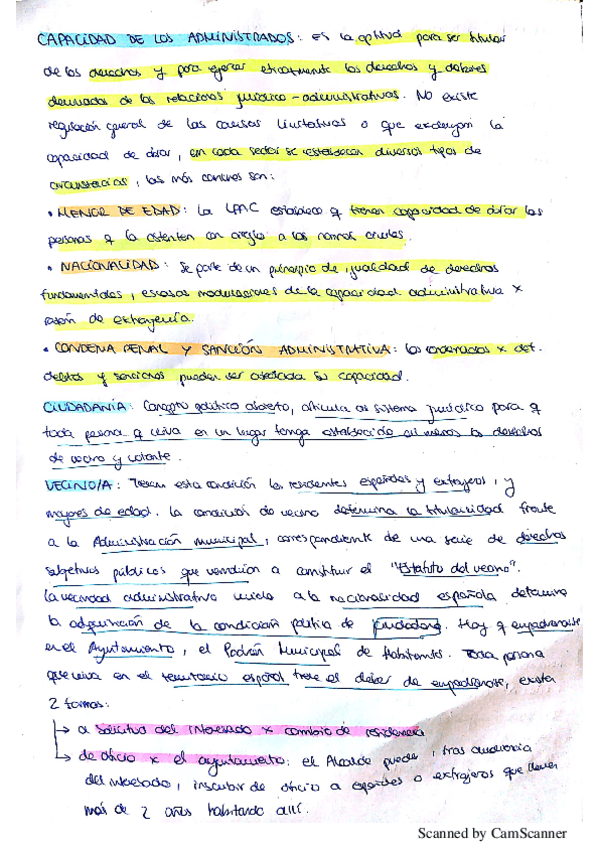 CAPACIDAD DE LOS ADMINISTRADOS: es la aptitud para ser titular
de los derechos y para ejercer eficazmente los derechos y deberes
derivados de las relaciones jurídico-administrativas. No existe
regulación general de las causas limitativas o que excluyan la
capacidad de obrar, en cada sector se establecen diversos tipos de
circunstancias, las más comunes son:
• MENOR DE EDAD: La LPAC establece q tienen capacidad de obrar las
personas q la ostenten con arreglo a las normas civiles.
• NACIONALIDAD: Se parte de un principio de igualdad de derechos
fundamentales, escasas modulaciones de la capacidad administrativa x
razón de extranjería.
• CONDENA PENAL Y SANCIÓN ADMINISTRATIVA: los condenados x det.
delitos y sanciones pueden ver afectada su capacidad.
CIUDADANÍA: Concepto político abierto, articula un sistema jurídico para q
toda persona q viva en un lugar tenga establecido al menos los derechos
de vecino y votante.
VECINO/A: Tienen esta condición los residentes españoles y extranjeros, y
mayores de edad. La condición de vecino determina la titularidad frente
a la Administración municipal, correspondiente de una serie de derechos
subjetivos públicos que vendrían a constituir el "Estatuto del vecino".
La vecindad administrativa unida a la nacionalidad española determina
la adquisición de la condición política de ciudadano. Hay q empadronarse
en el Ayuntamiento, el Padrón Municipal de Habitantes. Toda persona
que viva en el territorio español tiene el deber de empadronarse,
2 formas:
→ a solicitud del interesado x cambio de residencia
→ de oficio x el ayuntamiento: el Alcalde puede, tras audiencia
del interesado, inscribir de oficio a españoles o extranjeros que lleven
más de 2 años habitando allí.
Scanned by CamScanner